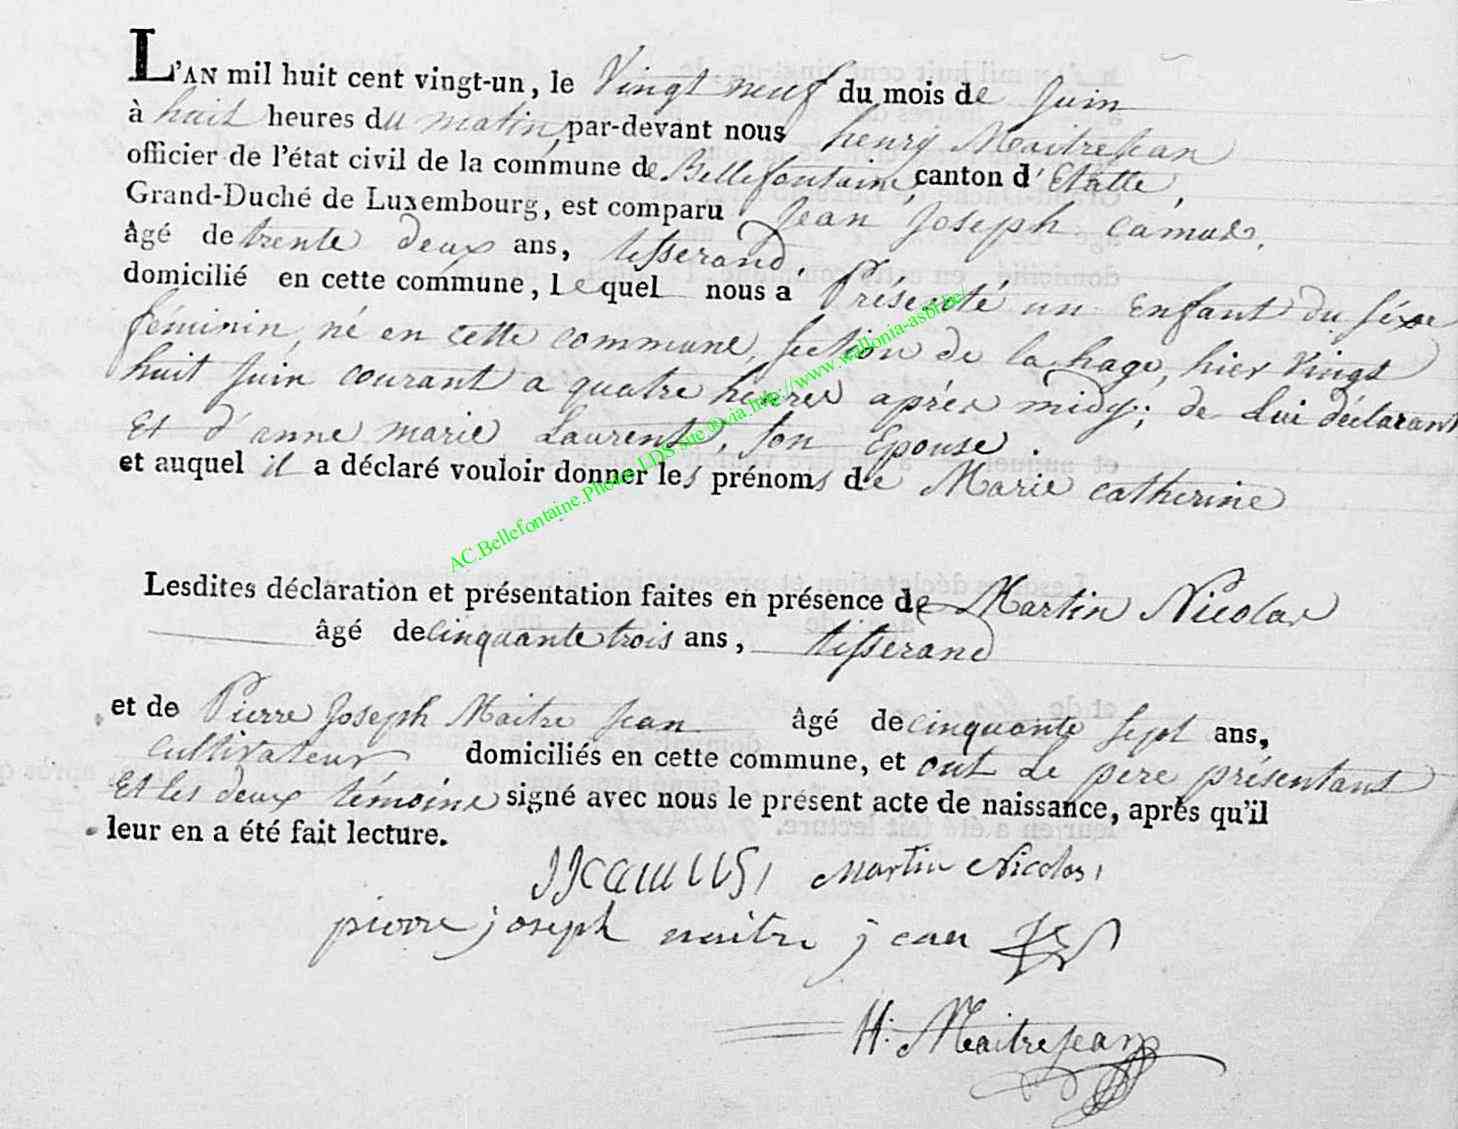 L'AN mil huit cent vingt-un, le Vingt neuf du mois de Juin
à huit heures du matin, par-devant nous henry Maitrejean
officier de l'état civil de la commune de Bellefontaine, canton d'Etalle,
Grand-Duché de Luxembourg, est comparu Jean Joseph Camus,
âgé de trente deux ans, tisserand,
domicilié en cette commune, lequel nous a Présenté un Enfant du séxe
féminin, né en cette commune, section de la hage, hier Vingt
huit Juin courant a quatre heures après midy; de Lui déclarant
Et d'anne marie Laurent, son Epouse.
et auquel il a déclaré vouloir donner les prénoms de Marie catherine
AC.Bellefontaine.Photos.LDS. via http://www.wallonia-asbl.be/
Lesdites déclaration et présentation faites en présence de Martin Nicolas
âgé de cinquante trois ans, tisserand
et de Pierre Joseph Maitre Jean âgé de cinquante sept ans,
cultivateur domiciliés en cette commune, et ont Le pere présentant
Et les deux témoins signé avec nous le présent acte de naissance, après qu'il
leur en a été fait lecture.
JJCAMUS, Martin Nicolas,
pierre joseph maitre jean
H. Maitrejean